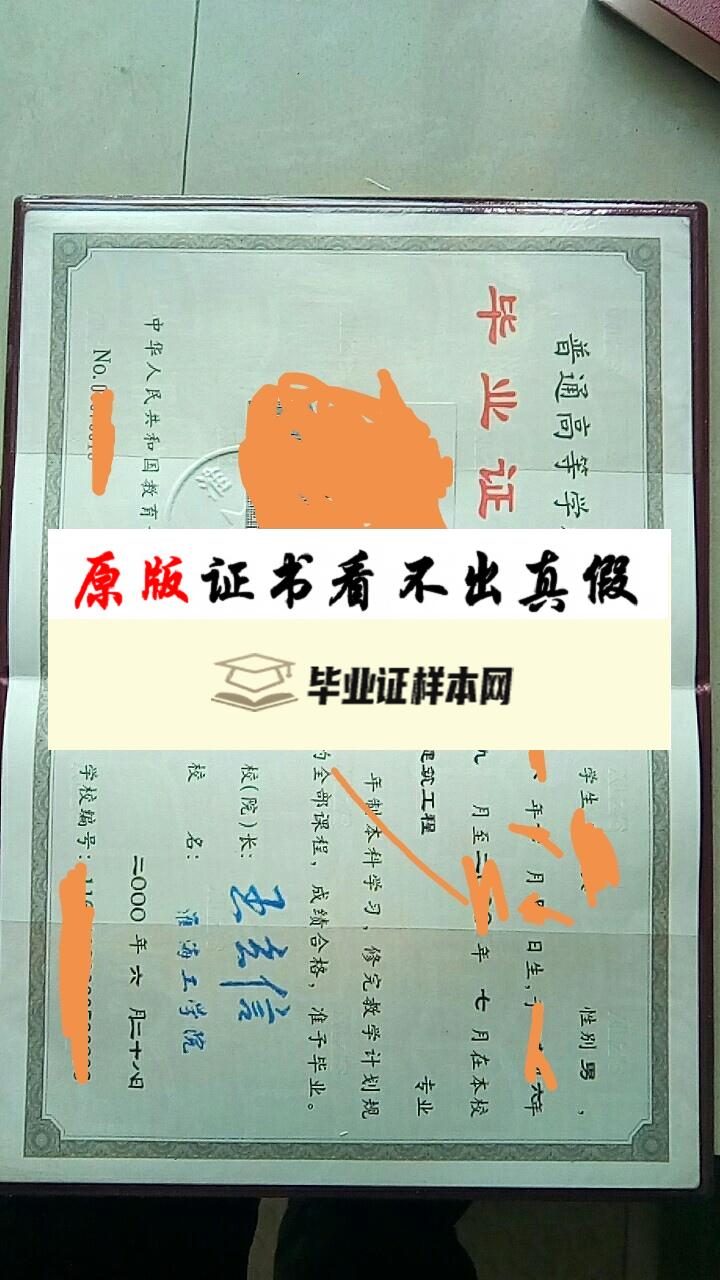 普通高等学
毕业证
中华人民共和国教育
No.0
原版证书看不出真假
毕业证样本网
学生 性别 男 ,
年 月 日生,于 六年
九 月至二 年 七 月在本校
建筑工程 专业
年制本科学习,修完教学计划规
的全部课程,成绩合格,准予毕业。
校(院)长:
校 名: 淮海工学院
二000 年 六 月二十八日
学校编号:116